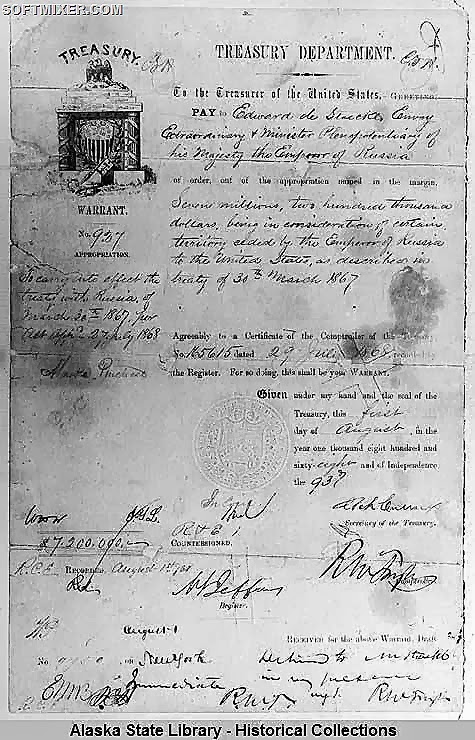 SOFTMIXER.COM
TREASURY.
TREASURY DEPARTMENT.
To the Treasurer of the United States, GREETING:
PAY to Edward de Stoeckl, Envoy
Extraordinary & Minister Plenipotentiary of
his Majesty the Emperor of Russia
or order, out of the appropriation named in the margin,
Seven millions, two hundred thousand
dollars, being in consideration of certain
territory ceded by the Emperor of Russia
to the United States, as described in
treaty of 30th March 1867
WARRANT.
No. 927
APPROPRIATION.
To carry into effect the
treaty with Russia, of
March 30th 1867, per
Act App. 27 July 1868
Alaska Purchase
Agreeably to a Certificate of the Comptroller of the Treasury
No. 165615 dated 29 July 1868, recorded by
the Register. For so doing, this shall be your WARRANT.
Given under my hand and the seal of the
Treasury, this first
day of August, in the
year one thousand eight hundred and
sixty-eight and of Independence
the 93d
Secretary of the Treasury.
$7,200,000.
COUNTERSIGNED,
Comptroller.
RECORDED, August 1st
Register.
RECEIVED for the above Warrant, Draft
August 1
No. on New York
Immediate
in my presence
Alaska State Library - Historical Collections